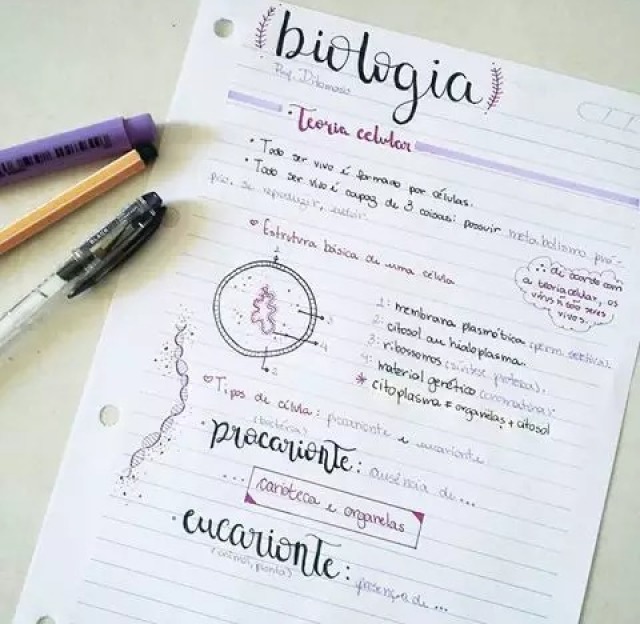 biologia
Prof.
• Teoria celular
• Todo ser vivo é formado por células.
• Todo ser vivo é capaz de 3 coisas: possuir metabolismo pró-
prio, se reproduzir, evoluir.
♡ Estrutura básica de uma célula
∴ de acordo com
a teoria celular, os
vírus não são seres
vivos.
1
3
4
2
1: membrana plasmática (perm. seletiva).
2: citosol ou hialoplasma.
3: ribossomos (síntese proteica).
4: material genético (cromatina).
* citoplasma ≠ organelas + citosol
♡ Tipos de célula: procarionte e eucarionte
(bactéria)
• procarionte: ausência de ...
... carioteca e organelas
• eucarionte: presença de ...
(animal, planta)
BLACK